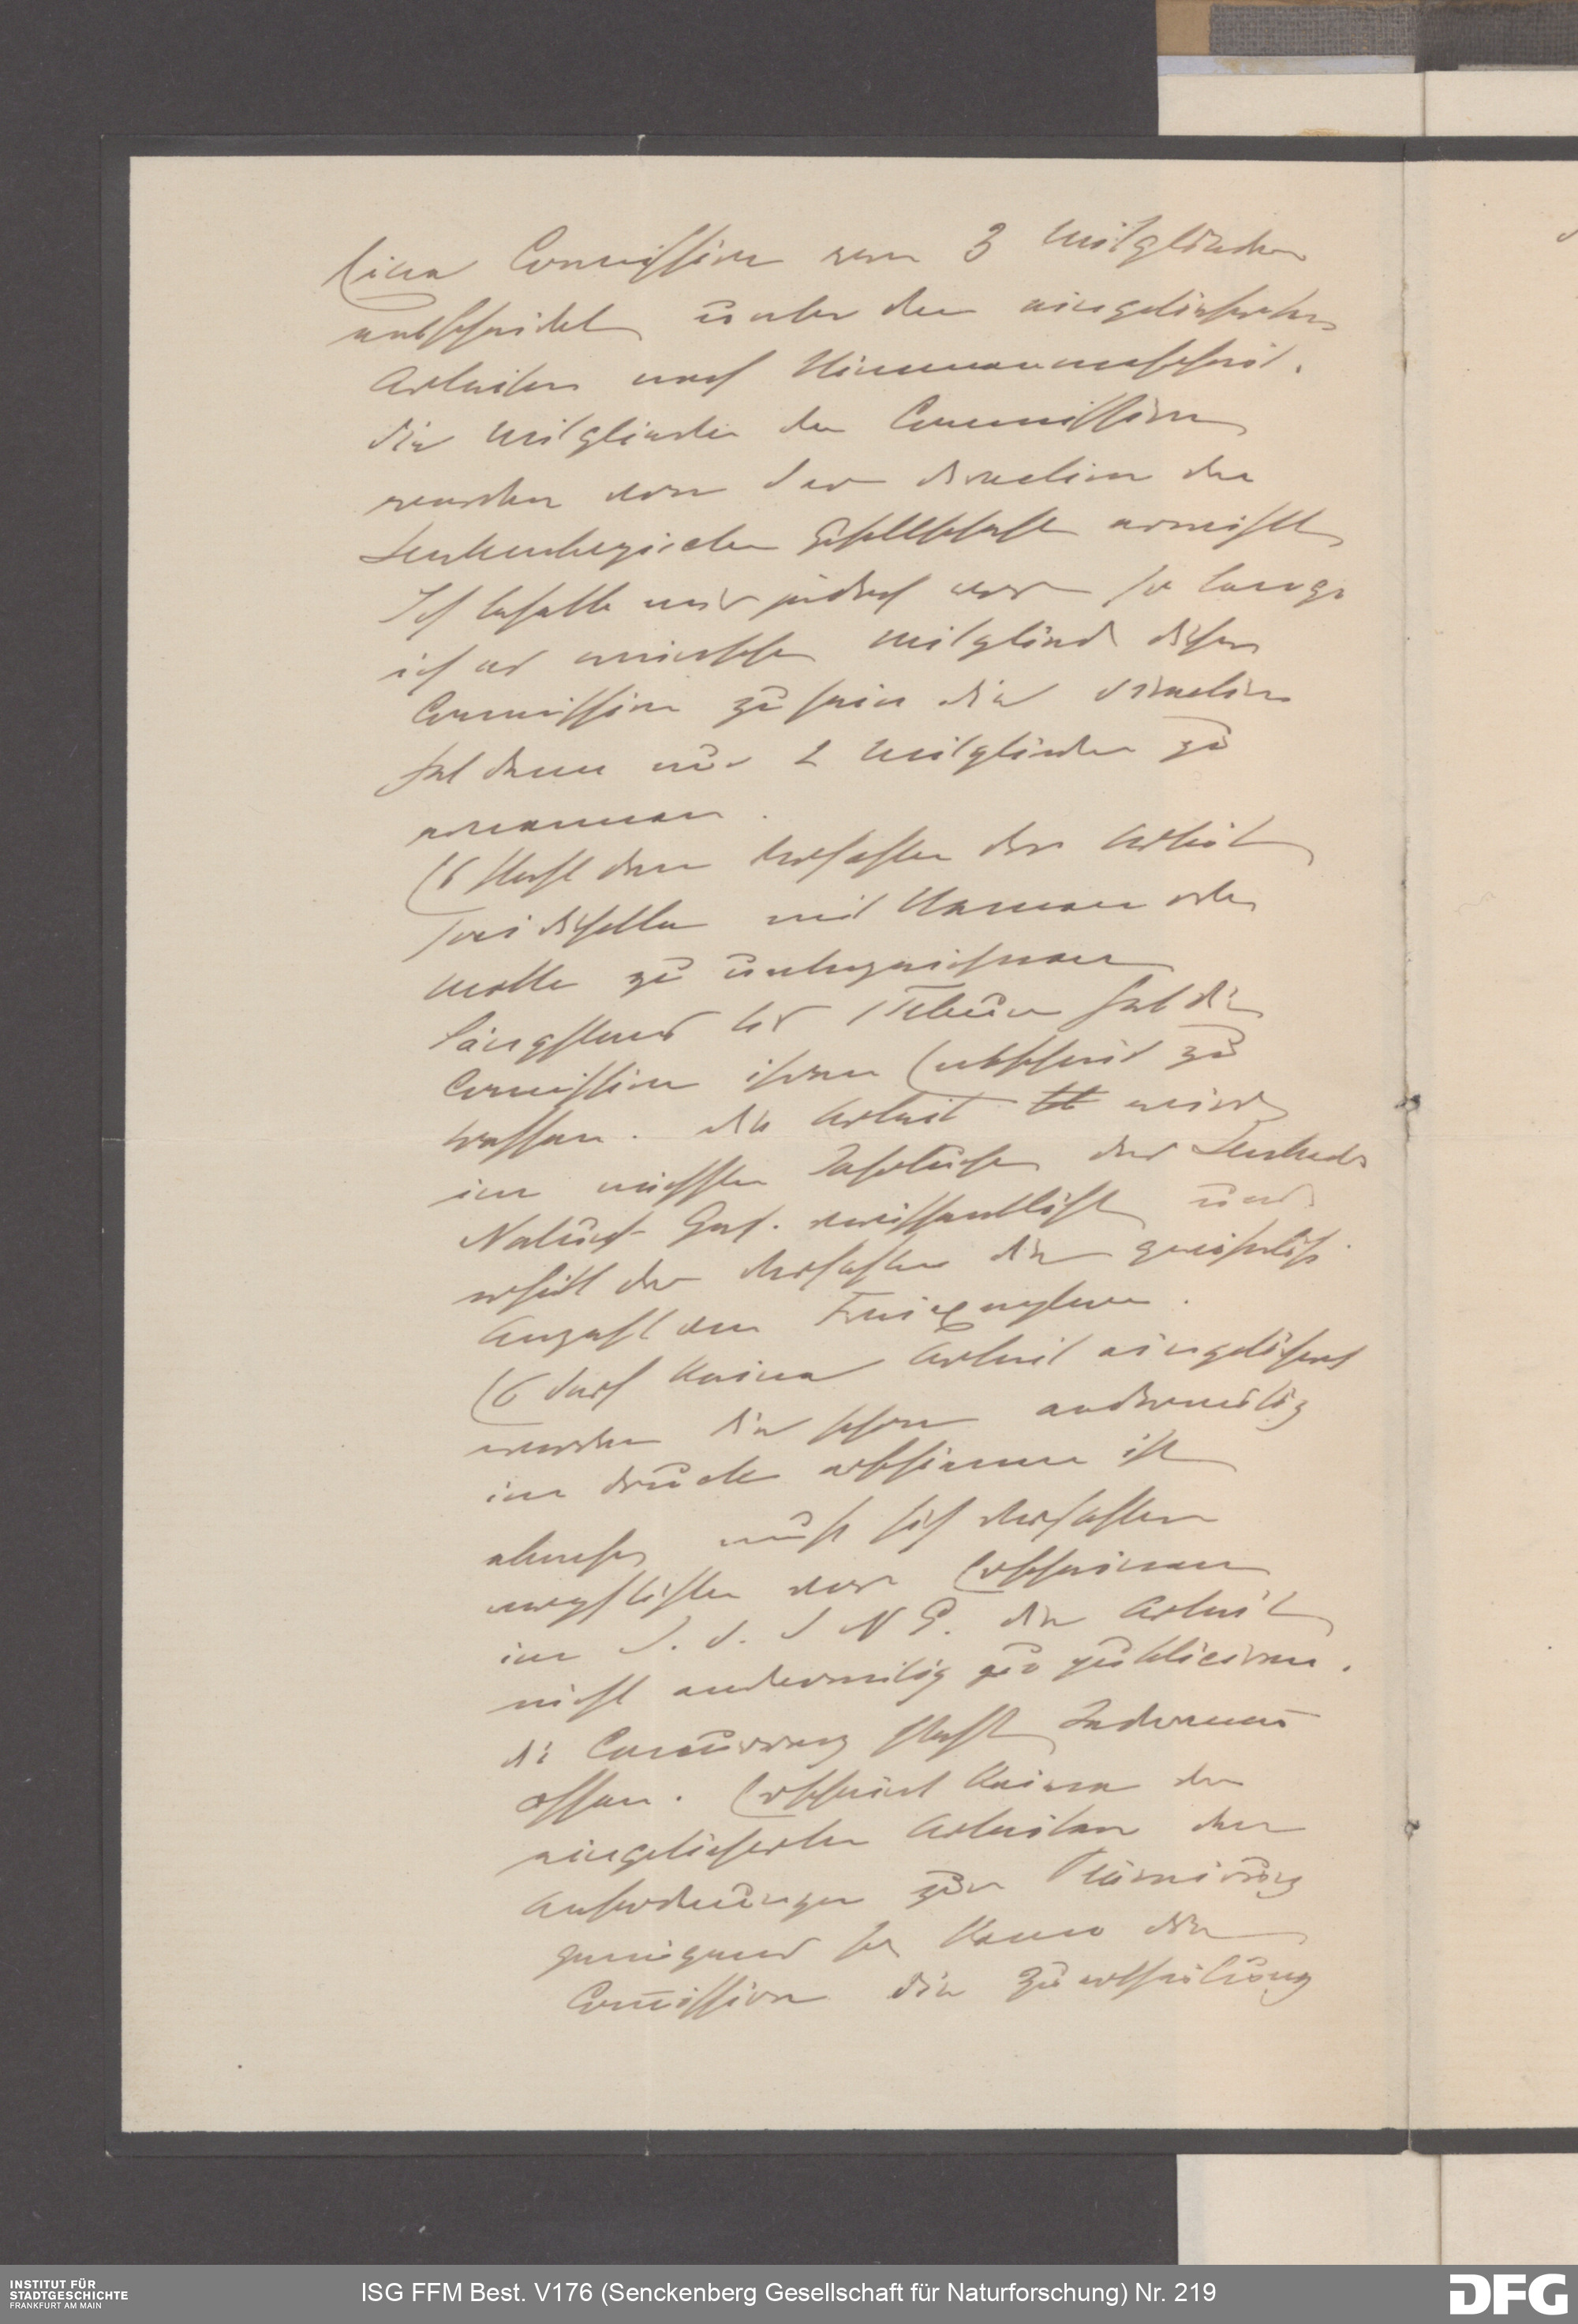 Eine Commission von 3 Mitgliedern
entscheidet unter den eingelieferten
Arbeiten nach Stimmenmehrheit.
Die Mitglieder der Commission
werden von der Direction der
Senckenbergischen Gesellschaft erwählt
Ich behalte mir jedoch vor so lange
ich es wünsche Mitglied dieser
Commission zu sein die Direction
hat dann nur 2 Mitglieder zu
ernennen.
Es steht dem Verfasser der Arbeit
frei dieselbe mit Namen oder
Motto zu unterzeichnen
Längstens bis 1 Februar hat die
Commission ihren Entscheid zu
treffen. Die Arbeit wird
im nächsten Jahrbuche der Senckenb
Naturf. Ges. veröffentlicht und
erhält der Verfasser die gewöhnliche
Anzahl von Freiexemplaren.
Es darf keine Arbeit eingeliefert
werden die schon anderweitig
im Drucke erschienen ist
ebenso muss sich Verfasser
verpflichten vor Erscheinen
im J. d. S N G. die Arbeit
nicht anderweitig zu publiciren.
Die Concurrenz steht Jedermann
offen. Erscheint keine der
eingelieferten Arbeiten den
Anforderungen zur Prämirung
genügend so kann die
Commission die Zuertheilung
ISG FFM Best. V176 (Senckenberg Gesellschaft für Naturforschung) Nr. 219
INSTITUT FÜR
STADTGESCHICHTE
FRANKFURT AM MAIN
DFG